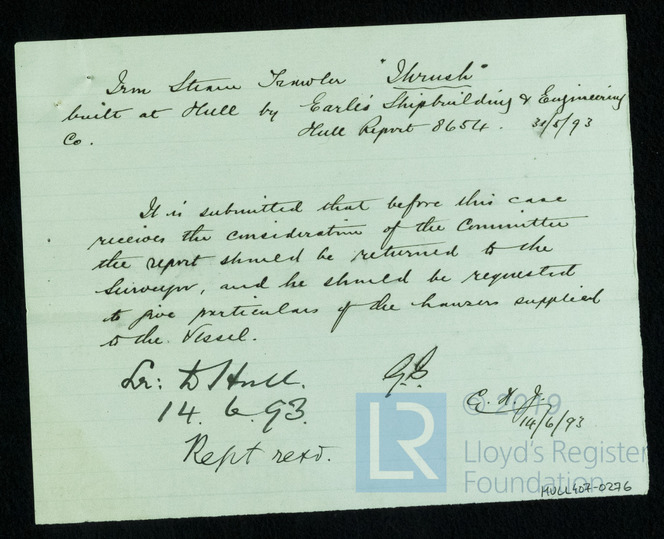 Iron Steam Trawler "Thrush"
built at Hull by Earle's Shipbuilding & Engineering
Co. Hull Report 8654. 31/5/93
It is submitted that before this case
receives the consideration of the Committee
the report should be returned to the
Surveyor, and he should be requested
to give particulars of the hawsers supplied
to the Vessel.
Lr: to Hull.
14.6.93.
Rept recd.
G.B.
E. H. J.
14/6/93
© 2019
LR
Lloyd's Register
Foundation
HULL407-0276